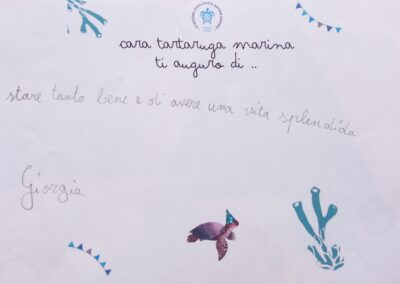 cara tartaruga marina
ti auguro di ..
stare tanto bene e di avere una vita splendida
Giorgia